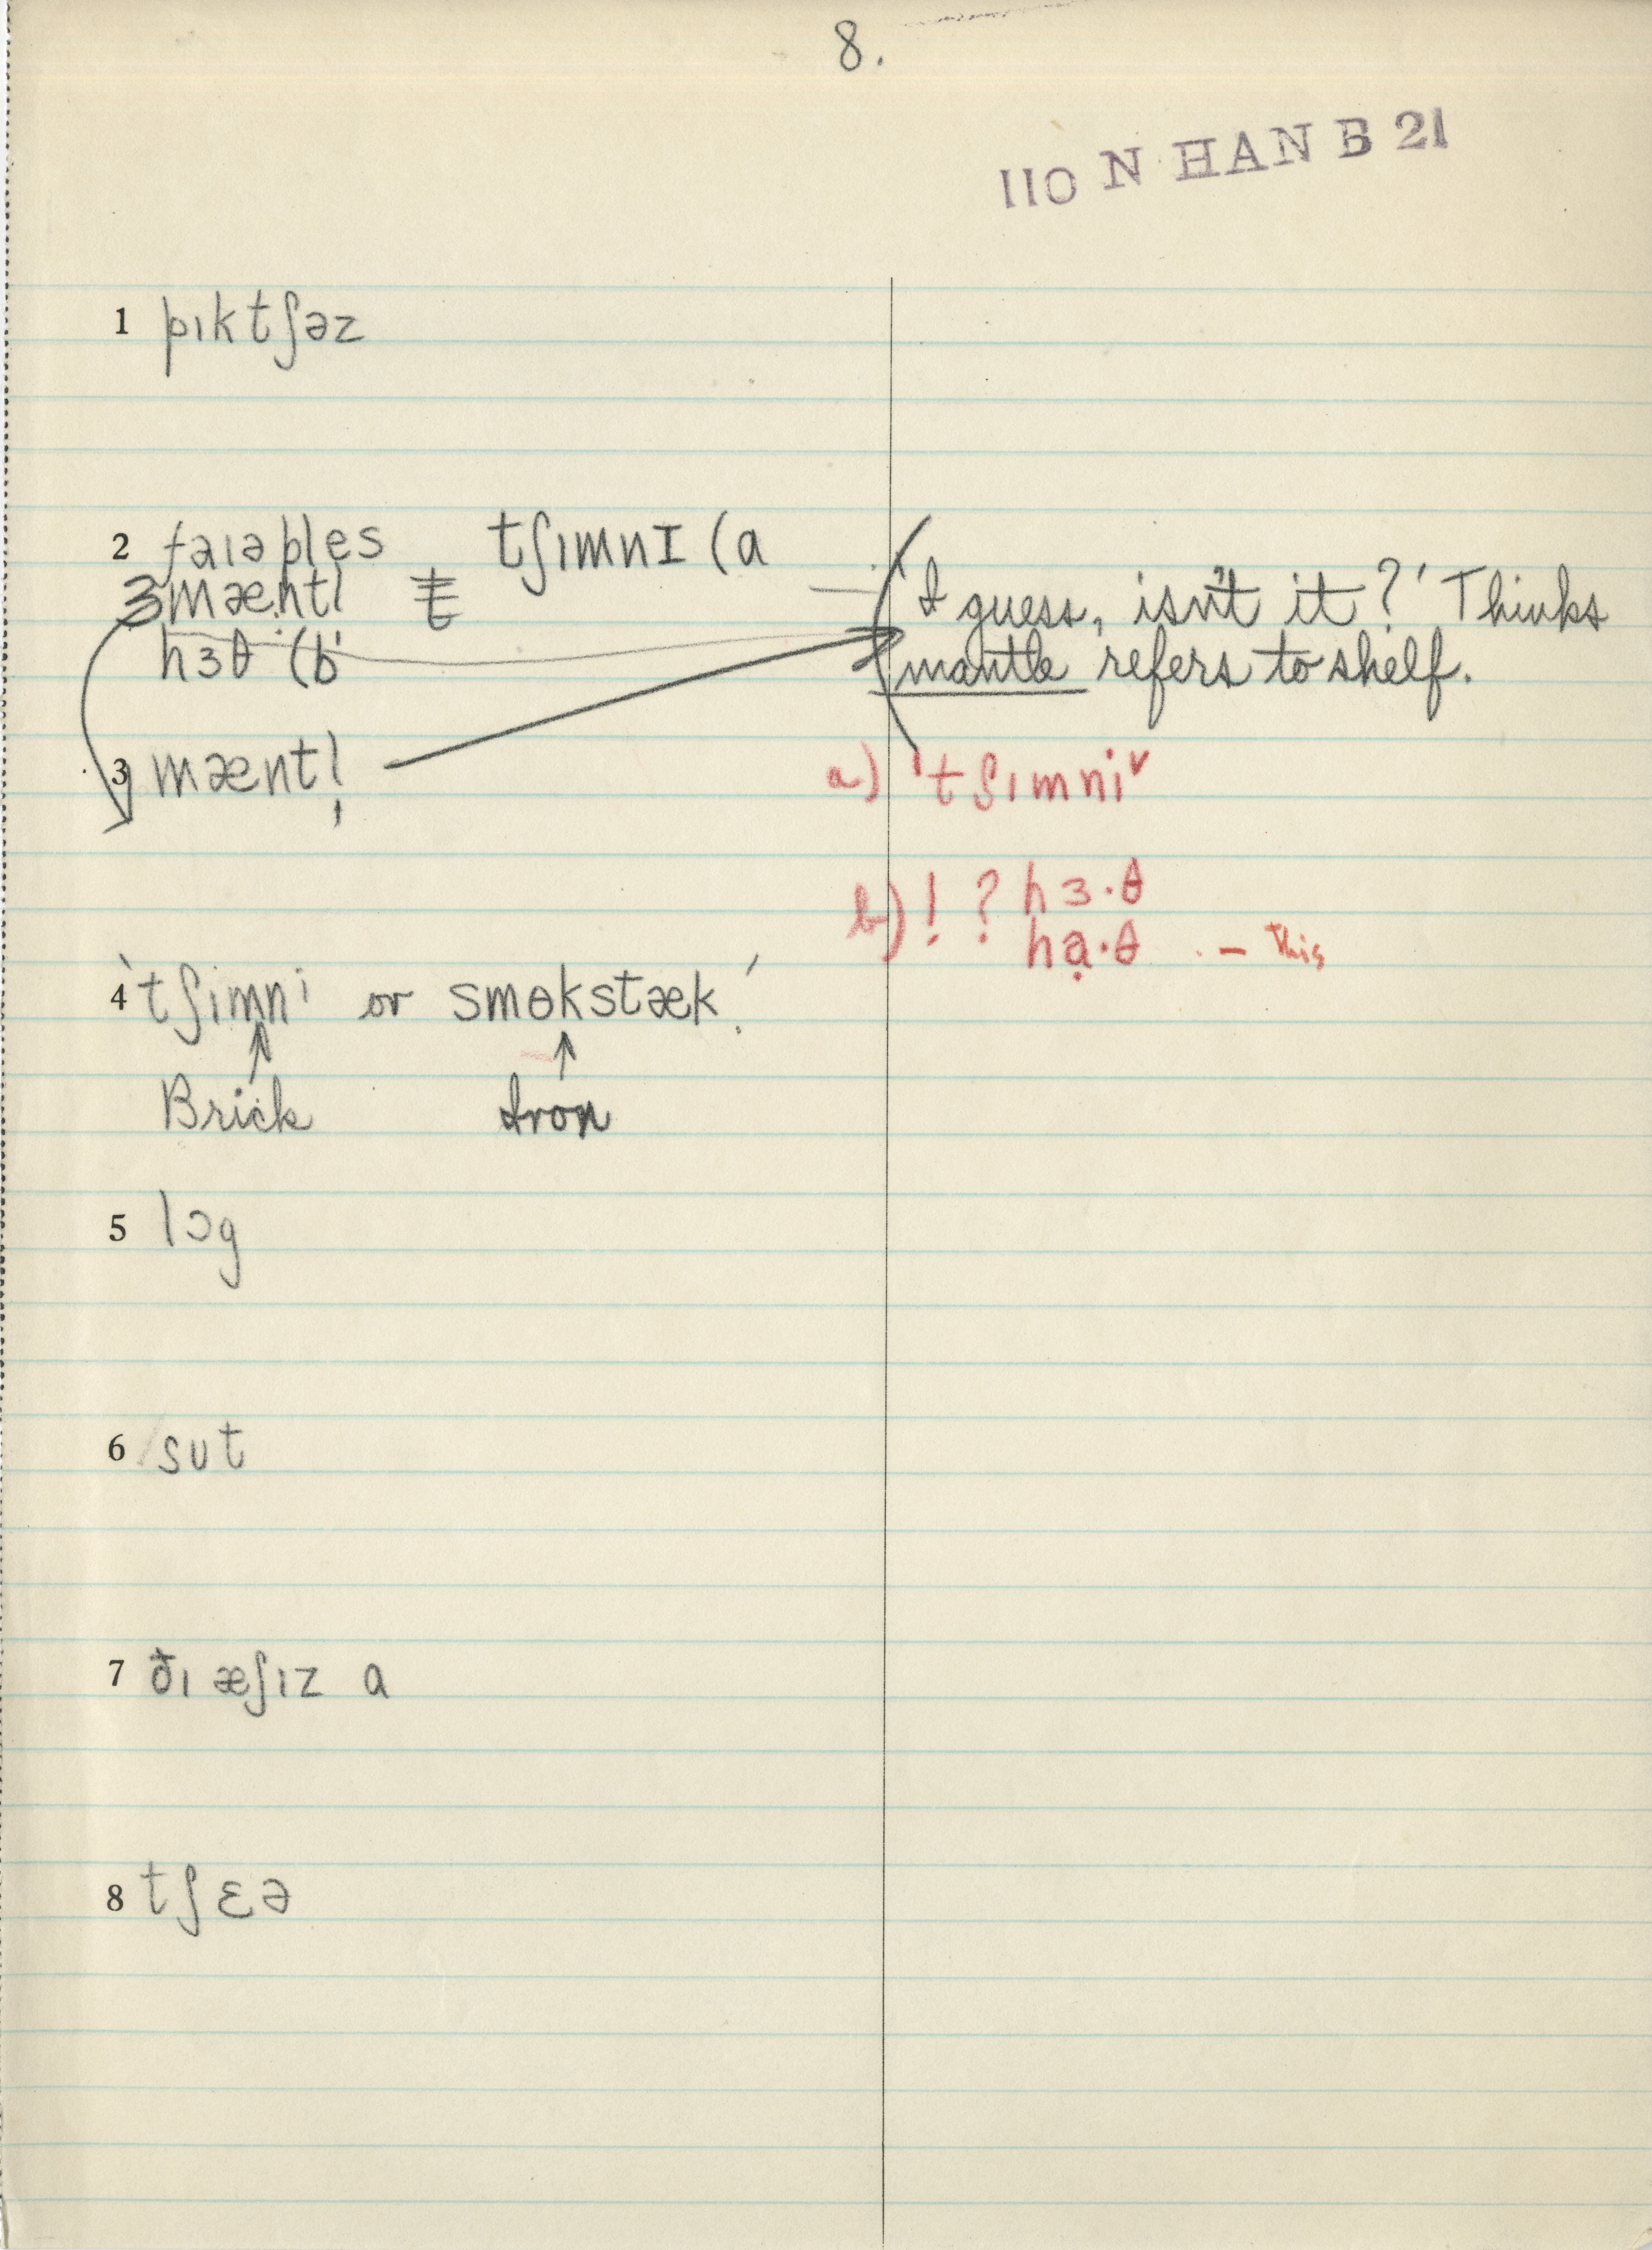 8.
110 N HAN B 21
1 pıktʃəz
2 faıəples tʃımnI (a
3 mæntl
hɜθ (b
'I guess, isn't it?' Thinks
mantle refers to shelf.
3 mæntl̩
a) 'tʃımni˅
b) ! ? hɜ·θ
hạ·θ - This
4 'tʃimni or smɵkstæk.'
↑ ↑
Brick Iron
5 lɔg
6 sut
7 ðı æʃız a
8 tʃɛə